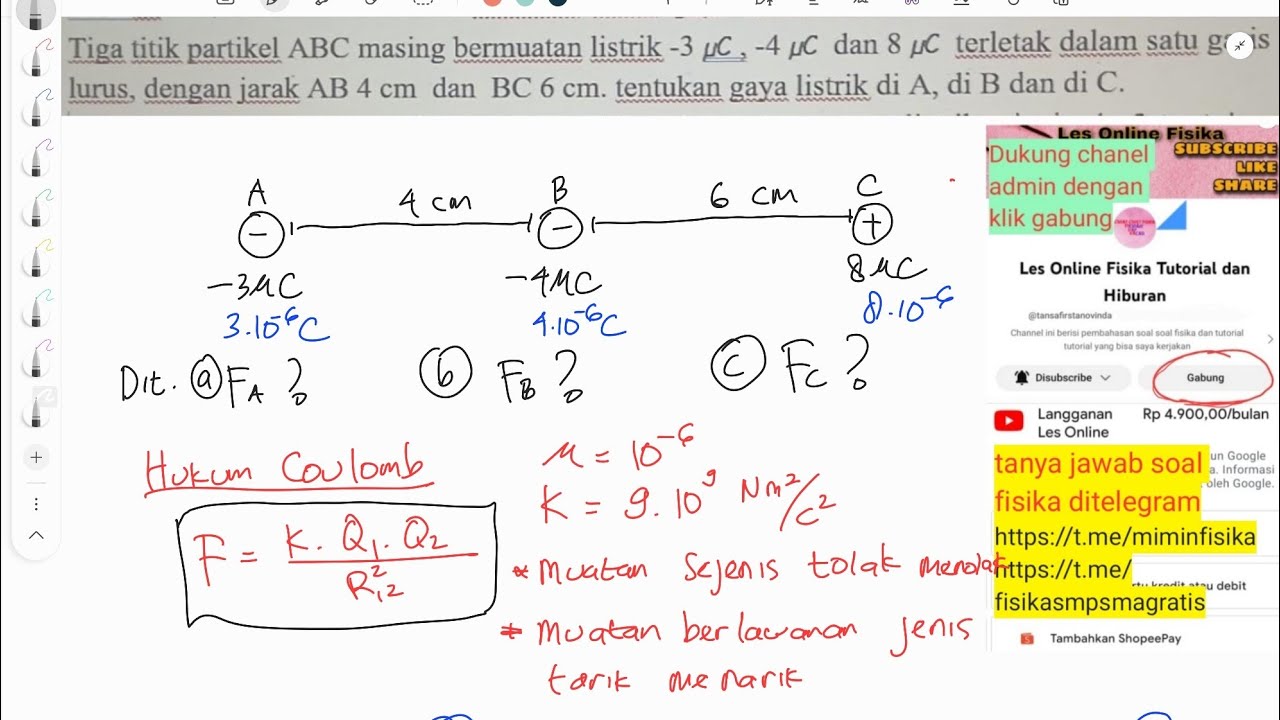 Tiga titik partikel ABC masing bermuatan listrik -3 μC , -4 μC dan 8 μC terletak dalam satu garis
lurus, dengan jarak AB 4 cm dan BC 6 cm. tentukan gaya listrik di A, di B dan di C.
A 4 cm B 6 cm C
− − +
-3μC -4μC 8μC
3.10⁻⁶C 4.10⁻⁶C 8.10⁻⁶
Dit. ⓐ F_A ? ⓑ F_B ? ⓒ F_C ?
Hukum Coulomb
F = K. Q₁. Q₂ / R₁,₂²
μ = 10⁻⁶
K = 9.10⁹ Nm²/C²
* muatan sejenis tolak menolak
* muatan berlawanan jenis
tarik menarik
Les Online Fisika
SUBSCRIBE
LIKE
SHARE
Dukung chanel
admin dengan
klik gabung
Les Online Fisika Tutorial dan
Hiburan
@tansafirstanovinda
Channel ini berisi pembahasan soal soal fisika dan tutorial
tutorial yang bisa saya kerjakan
Disubscribe
Gabung
Langganan Rp 4.900,00/bulan
Les Online
un Google
a. Informasi
oleh Google.
tanya jawab soal
fisika ditelegram
https://t.me/miminfisika
https://t.me/
fisikasmpsmagratis
kredit atau debit
Tambahkan ShopeePay